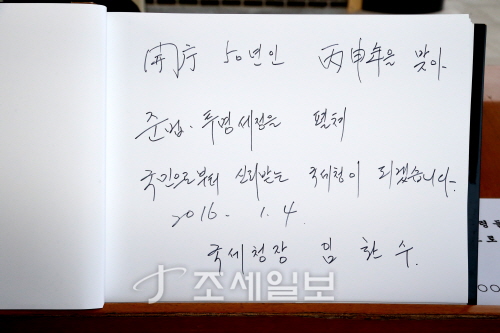 開庁 50년인 丙申年을 맞아
준법·투명세정을 펼쳐
국민으로부터 신뢰받는 국세청이 되겠습니다.
2016. 1. 4.
국세청장 임환수.
조세일보